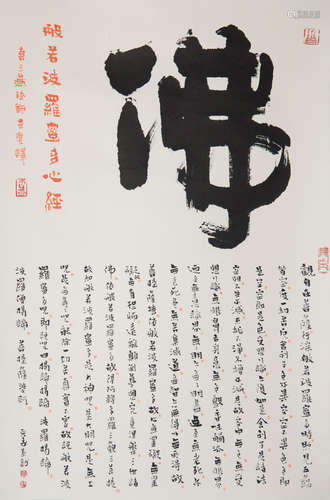 佛
般若波羅蜜多心經
唐三藏法師玄奘譯
觀自在菩薩行深般若波羅蜜多時照見五
蘊皆空度一切苦厄舍利子色不異空空不異色色即
是空空即是色受想行識亦復如是舍利子是諸法
空相不生不滅不垢不淨不增不減是故空中無色無受
想行識無眼耳鼻舌身意無色聲香味觸法無眼界乃
至無意識界無無明亦無無明盡乃至無老死亦
無老死盡無苦集滅道無智亦無得以無所得故
菩提薩埵依般若波羅蜜多故心無罣礙無罣
礙故無有恐怖遠離顛倒夢想究竟涅槃三世諸
佛依般若波羅蜜多故得阿耨多羅三藐三菩提
故知般若波羅蜜多是大神咒是大明咒是無上
咒是無等等咒能除一切苦真實不虛故說般若波
羅蜜多咒即說咒曰揭諦揭諦波羅揭諦
波羅僧揭諦菩提薩婆訶